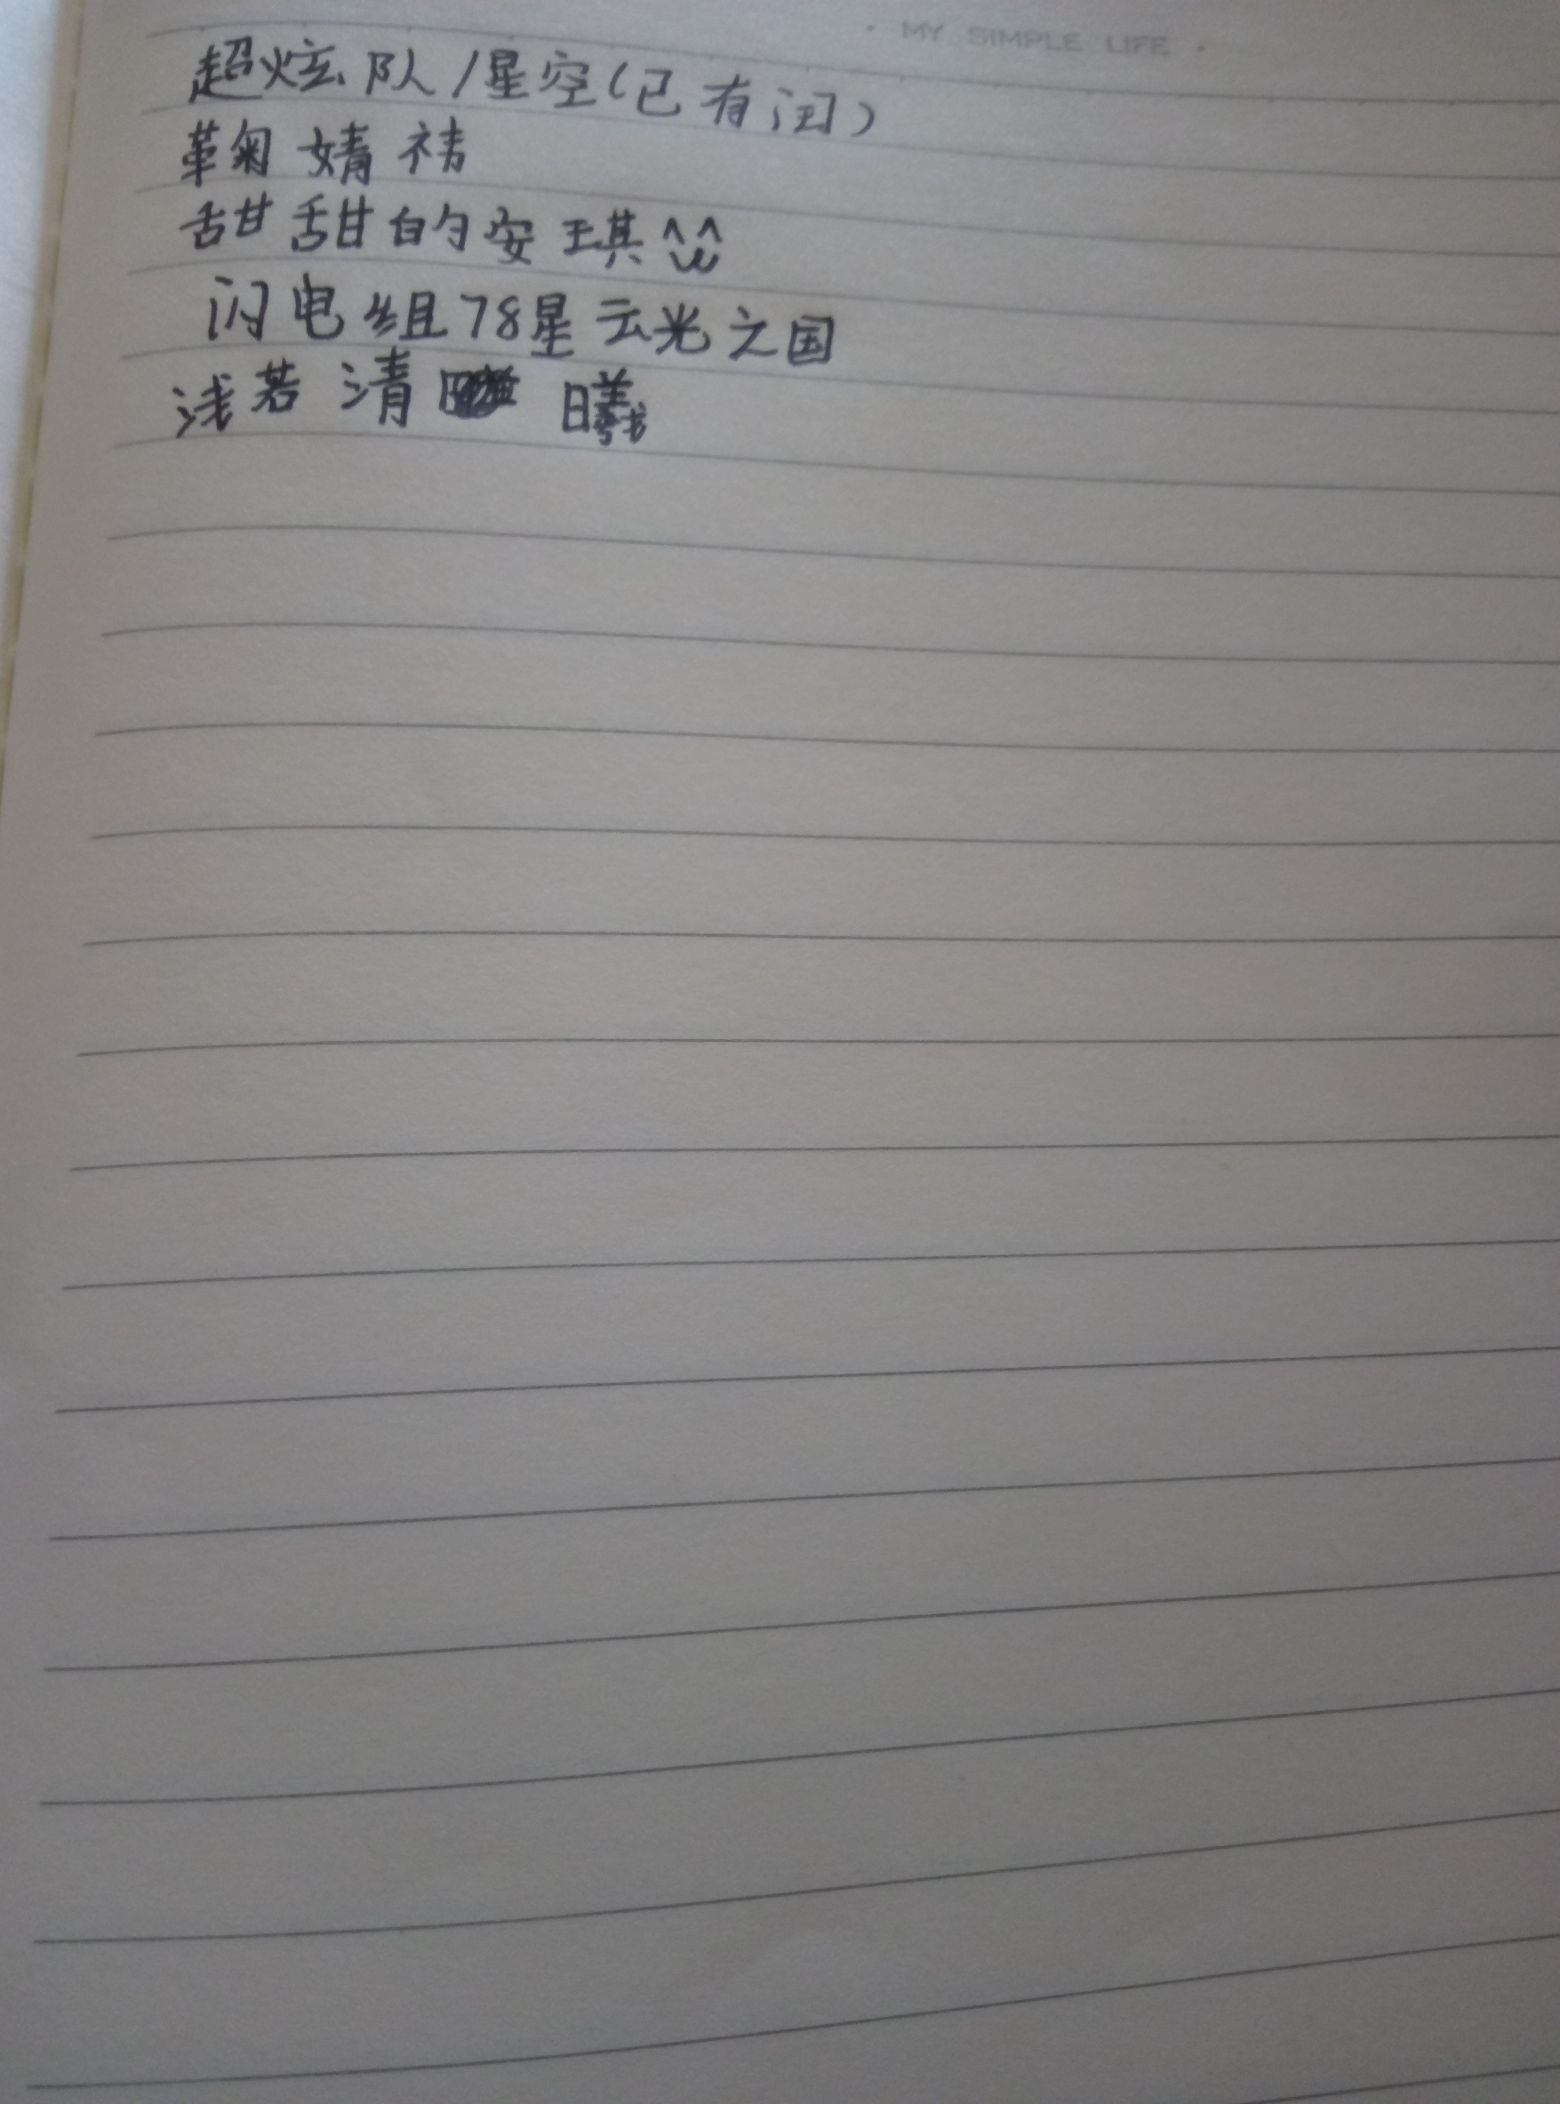 · MY SIMPLE LIFE ·
超炫队/星空(已有闺)
鞠婧祎
甜甜的安琪^^ω
闪电组78星云光之国
浅若清 曦